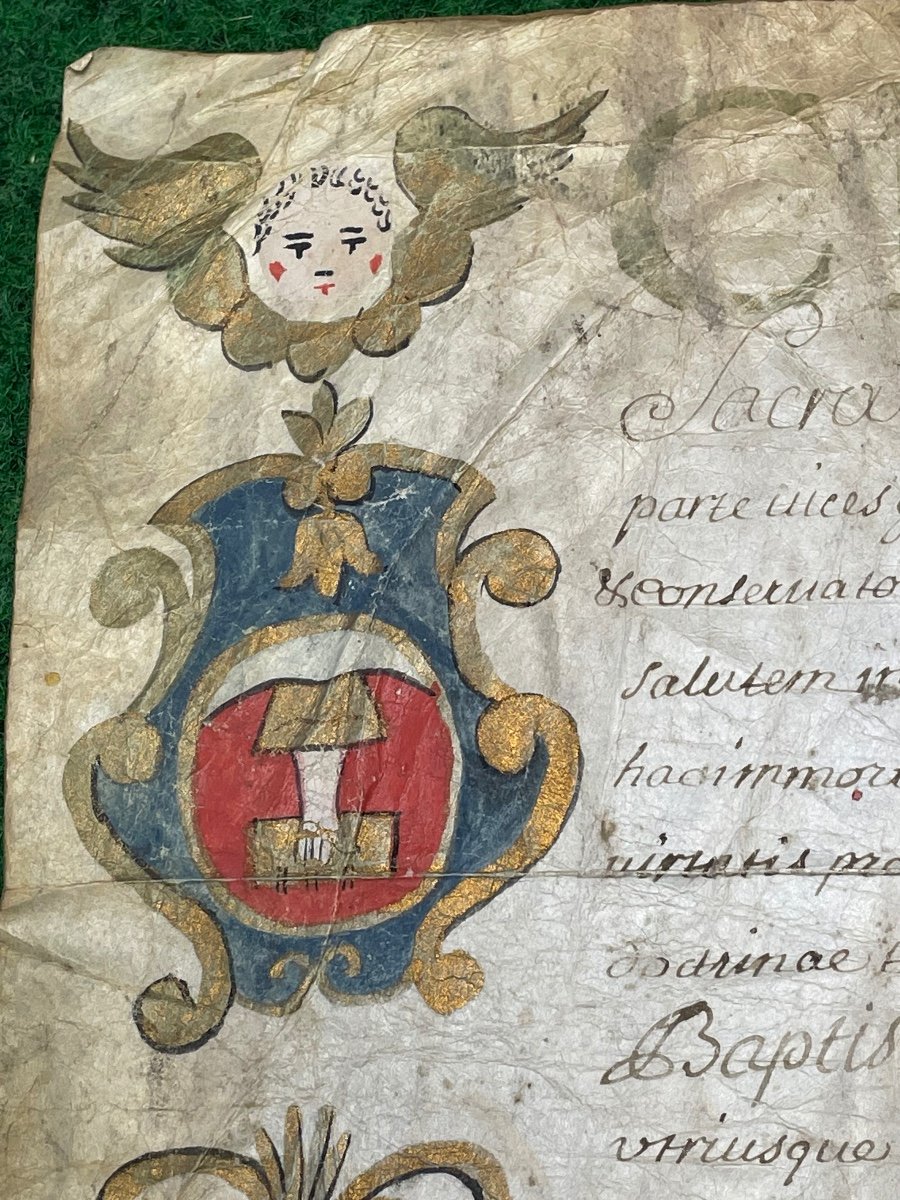 C
Sacra
parte uices g
& conseruato
salutem in
hac immor
uirtutis pro
doctrinae t
Baptis
vtriusque